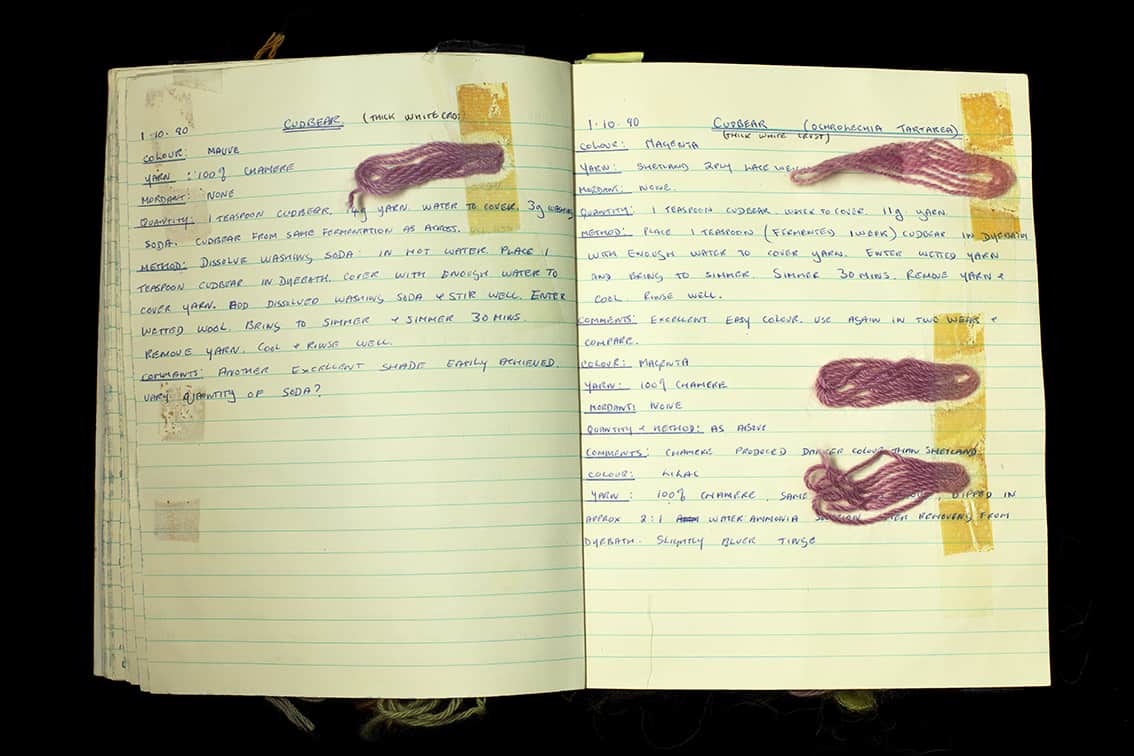 1·10·90 CUDBEAR (THICK WHITE CRUST
COLOUR: MAUVE
YARN : 100% CHAMERE
MORDANT: NONE
QUANTITY: 1 TEASPOON CUDBEAR. 14g YARN. WATER TO COVER. 3g WASHING
SODA. CUDBEAR FROM SAME FERMENTATION AS ACROSS.
METHOD: DISSOLVE WASHING SODA IN HOT WATER. PLACE 1
TEASPOON CUDBEAR IN DYEBATH. COVER WITH ENOUGH WATER TO
COVER YARN. ADD DISSOLVED WASHING SODA & STIR WELL. ENTER
WETTED WOOL. BRING TO SIMMER & SIMMER 30 MINS.
REMOVE YARN. COOL & RINSE WELL.
COMMENTS: ANOTHER EXCELLENT SHADE EASILY ACHIEVED.
VARY QUANTITY OF SODA?
1·10·90 CUDBEAR (OCHROLECHIA TARTAREA)
(THICK WHITE CRUST)
COLOUR: MAGENTA
YARN: SHETLAND 2PLY LACE
MORDANT: NONE.
QUANTITY: 1 TEASPOON CUDBEAR. WATER TO COVER. 11g YARN.
METHOD: PLACE 1 TEASPOON (FERMENTED 1 WEEK) CUDBEAR IN DYEBATH
WITH ENOUGH WATER TO COVER YARN. ENTER WETTED YARN
AND BRING TO SIMMER. SIMMER 30 MINS. REMOVE YARN &
COOL RINSE WELL.
COMMENTS: EXCELLENT EASY COLOUR. USE AGAIN IN TWO WEEKS &
COMPARE.
COLOUR: MAGENTA
YARN: 100% CHAMERE
MORDANT: NONE
QUANTITY & METHOD: AS ABOVE
COMMENTS: CHAMERE PRODUCED DARKER COLOUR THAN SHETLAND
COLOUR: LILAC
YARN : 100% CHAMERE, SAME , DIPPED IN
APPROX 2:1 WATER AMMONIA REMOVING FROM
DYEBATH. SLIGHTLY BLUER TINGE